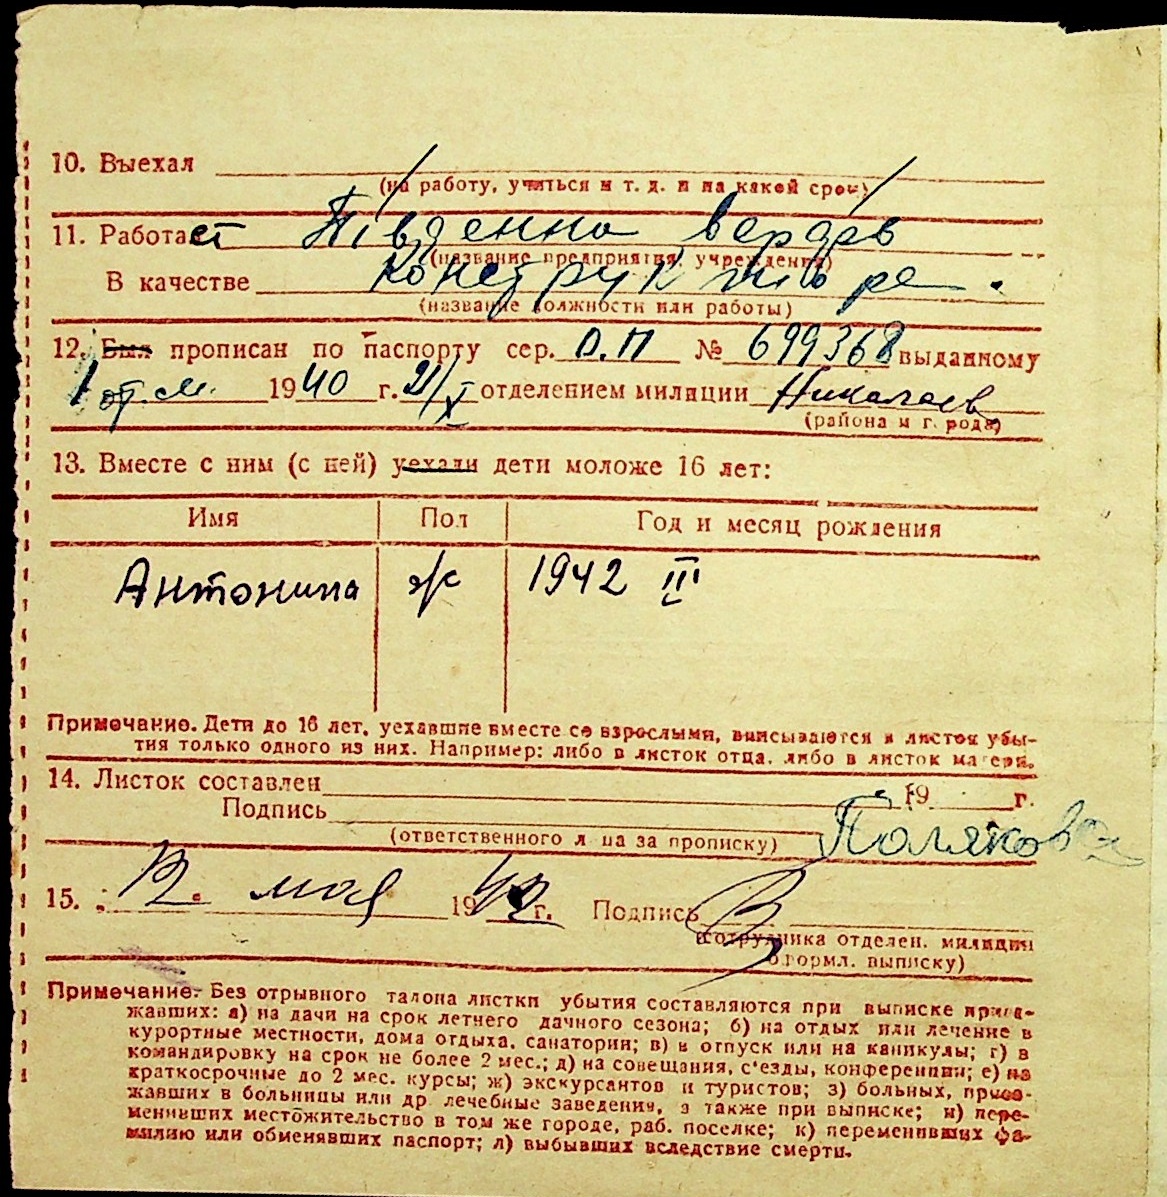 10. Выехал
(на работу, учиться и т. д. и на какой срок)
11. Работает Південна верфь
(название предприятия, учреждения)
В качестве конструктивора.
(название должности или работы)
12. Был прописан по паспорту сер. О.П № 699368 выданному
1 от. м. 1940 г. 21/X отделением милиции Николаев
(района и города)
13. Вместе с ним (с ней) уехали дети моложе 16 лет:
Имя Пол Год и месяц рождения
Антонина ж 1942 III
Примечание. Дети до 16 лет, уехавшие вместе со взрослыми, вписываются в листок убы-
тия только одного из них. Например: либо в листок отца, либо в листок матери.
14. Листок составлен 19 г.
Подпись Полякова
(ответственного лица за прописку)
15. 12. мая 1942 г. Подпись
(сотрудника отделен. милиции
оформл. выписку)
Примечание. Без отрывного талона листки убытия составляются при выписке приез-
жавших: а) на дачи на срок летнего дачного сезона; б) на отдых или лечение в
курортные местности, дома отдыха, санатории; в) в отпуск или на каникулы; г) в
командировку на срок не более 2 мес.; д) на совещания, с'езды, конференции; е) на
краткосрочные до 2 мес. курсы; ж) экскурсантов и туристов; з) больных, приез-
жавших в больницы или др. лечебные заведения, а также при выписке; и) пере-
менивших местожительство в том же городе, раб. поселке; к) переменивших фа-
милию или обменявших паспорт; л) выбывших вследствие смерти.